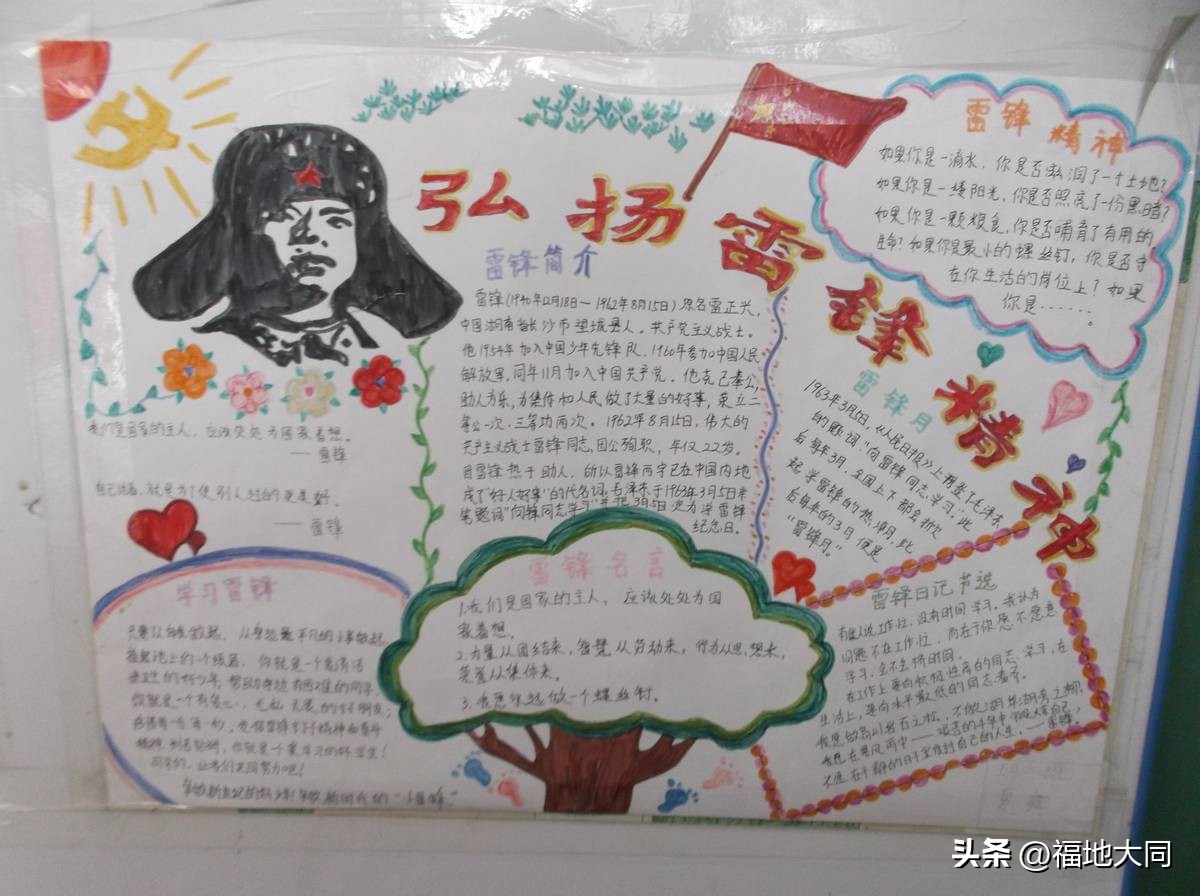 弘扬雷锋精神
雷锋简介
雷锋(1940年12月18日—1962年8月15日)原名雷正兴,
中国湖南省长沙市望城县人。共产党主义战士。
他1954年加入中国少年先锋队,1960年参加中国人民
解放军,同年11月加入中国共产党。他克己奉公,
助人为乐,为集体和人民做了大量的好事,荣立二
等功一次、三等功两次。1962年8月15日,伟大的
共产主义战士雷锋同志,因公殉职,年仅22岁。
因雷锋热于助人,所以雷锋两字已在中国内地
成了"好人好事"的代名词。毛泽东于1963年3月5日亲
笔题词"向雷锋同志学习"并把3月5日定为学雷锋
纪念日。
雷锋精神
如果你是一滴水,你是否滋润了一寸土地?
如果你是一缕阳光,你是否照亮了一份黑暗?
如果你是一颗粮食,你是否哺育了有用的
生命?如果你是最小的螺丝钉,你是否守
在你生活的岗位上?如果
你是……。
雷锋月
1963年3月5日,《人民日报》上刊登了毛泽东
的题词:"向雷锋同志学习"。此
后每年3月,全国上下都会掀
起学雷锋的热潮,此
后每年的3月便是
"雷锋月"。
我们是国家的主人,应该处处为国家着想。
——雷锋
自己活着,就是为了使别人过的更美好。
——雷锋
学习雷锋
只要从自我做起,从身边最平凡的小事做起
你就是一个有爱心、无私无畏的好朋友;
同学们,让我们共同努力吧!
雷锋名言
1.我们是国家的主人,应该处处为国
家着想。
2.力量从团结来,智慧从劳动来,行为从思想来,
荣誉从集体来。
3.我愿永远做一个螺丝钉。
雷锋日记节选
有些人说工作忙,没有时间学习。我认为
问题不在工作忙,而在于你愿不愿意
学习,会不会挤时间。
在工作上,要向积极性高的同志学习,在
生活上,要向水平最低的同志看齐。
头条 @福地大同